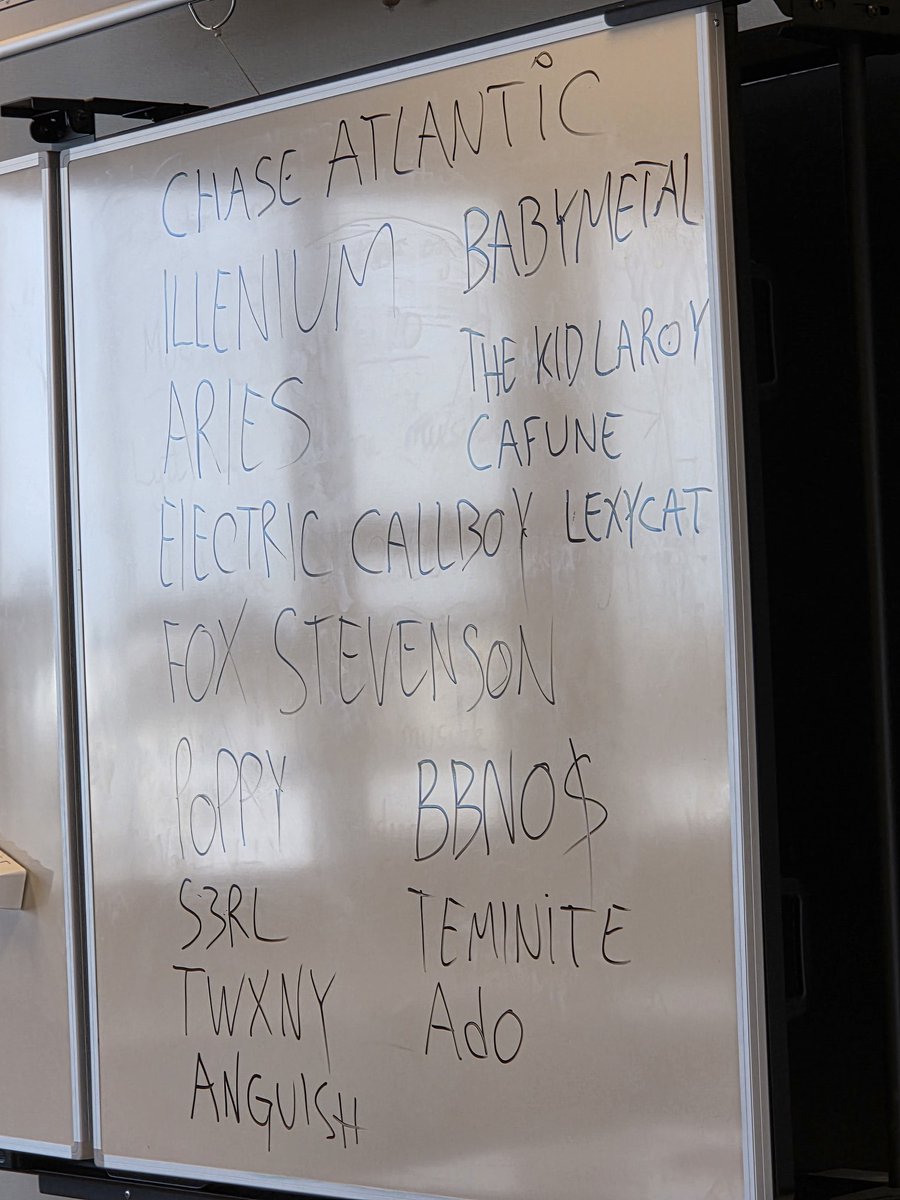 CHASE ATLANTIC
ILLENIUM
BABYMETAL
ARIES
THE KID LAROY
CAFUNE
ElECTRIC CALLBOY
LEXYCAT
FOX STEVENSON
POPPY
BBNO$
S3RL
TEMINITE
TWXNY
Ado
ANGUISH